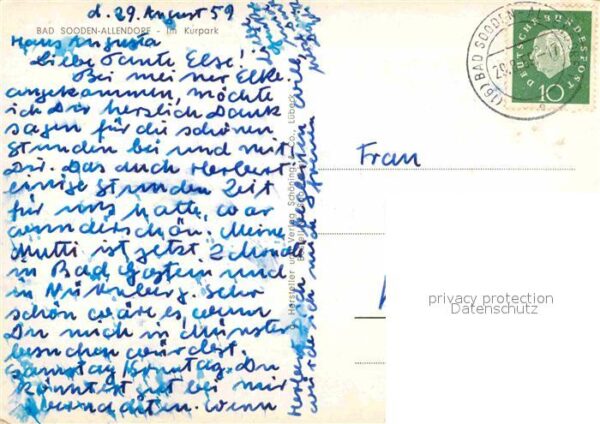 d. 29. August 59
BAD SOODEN-ALLENDORF - Im Kurpark
Haus Augusta
Liebe Tante Else!
Bei meiner Elke
angekommen, möchte
ich Dir herzlich Dank
sagen für die schönen
Stunden bei und mit
Dir. Das auch Herbert
einige Stunden Zeit
für uns hatte, war
wunderschön. Meine
Mutti ist jetzt
in Bad Gastein und
in Nürnberg. Sehr
schön wäre es, wenn
Du mich in Münster
besuchen würdest.
Samstag Sonntag. Du
könntest gut bei mir
übernachten. Wenn
würde ich mich freuen
Hersteller und Verlag Schöning & Co., Lübeck
Frau
(16) BAD SOODEN
DEUTSCHE BUNDESPOST
10
privacy protection
Datenschutz